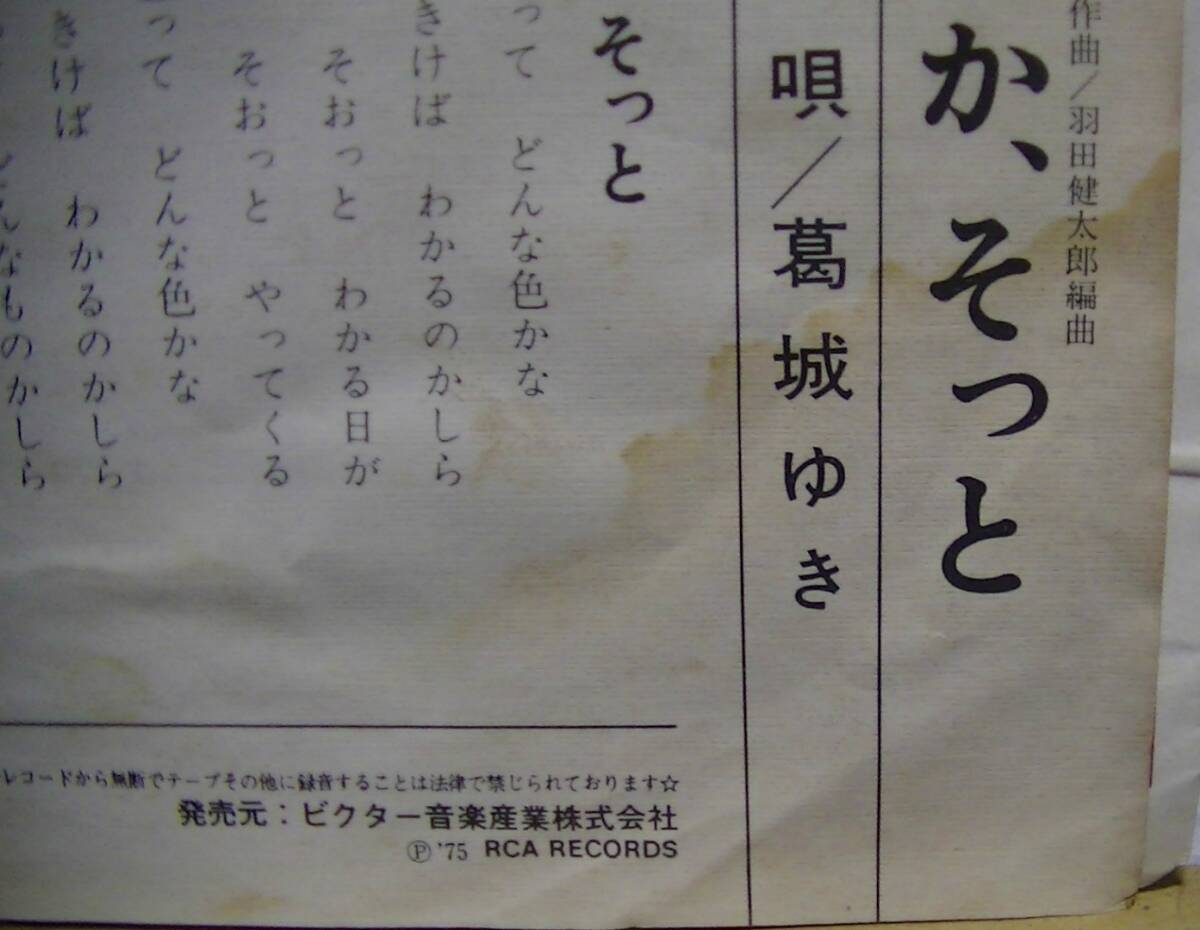 作曲/羽田健太郎編曲
か、そっと
唄/葛城ゆき
そっと
って どんな色かな
きけば わかるのかしら
そおっと わかる日が
そおっと やってくる
って どんな色かな
きけば わかるのかしら
どんなものかしら
レコードから無断でテープその他に録音することは法律で禁じられております☆
発売元:ビクター音楽産業株式会社
Ⓟ'75 RCA RECORDS